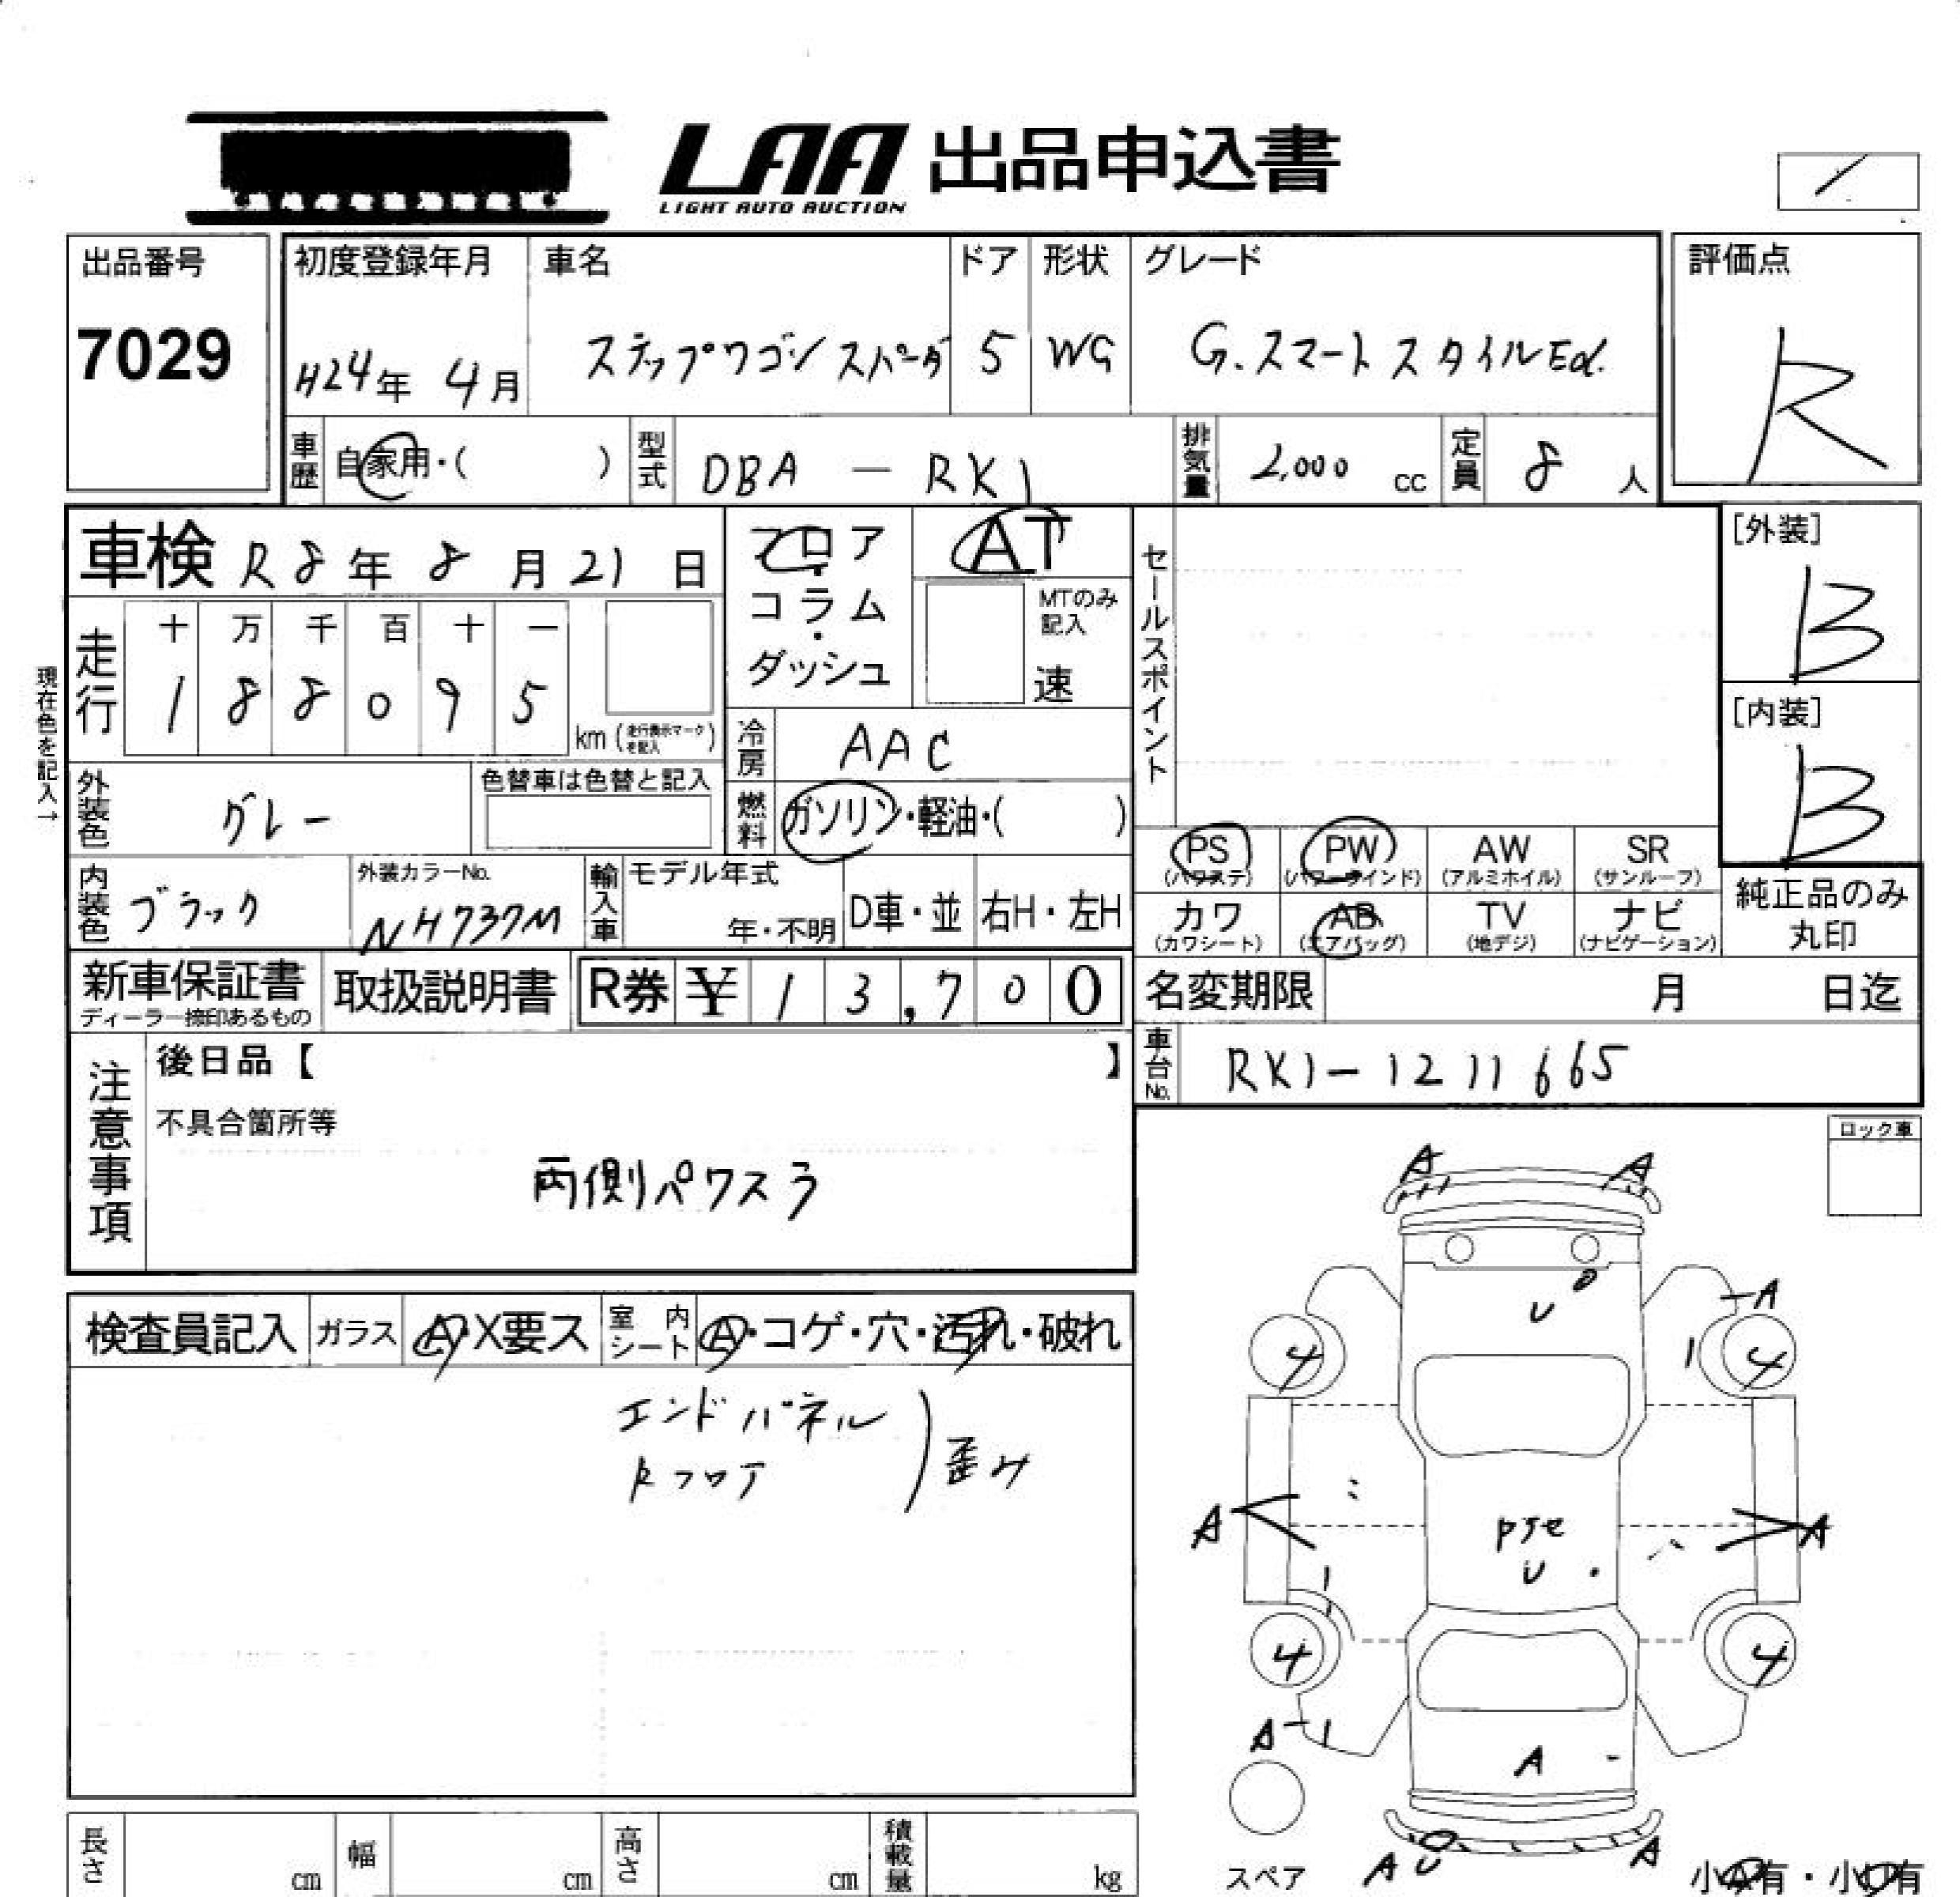 LAA 出品申込書
LIGHT AUTO AUCTION
出品番号
7029
初度登録年月
H24年 4月
車名
ステップワゴン スパーダ
ドア
5
形状
WG
グレード
G.スマートスタイルEd.
評価点
R
車歴 自家用・( )
型式 DBA - RK1
排気量 2,000 cc
定員 8 人
車検 R8年 8月21日
フロア・コラム・ダッシュ
AT
MTのみ記入
速
セールスポイント
[外装]
B
[内装]
B
現在色を記入→
走行
十 万 千 百 十 一
1 8 8 0 9 5
km (走行表示マークを記入)
冷房 AAC
燃料 ガソリン・軽油・( )
外装色 グレー
色替車は色替と記入
内装色 ブラック
外装カラーNo.
NH737M
輸入車
モデル年式
年・不明
D車・並
右H・左H
PS
(パワステ)
PW
(パワーウインド)
AW
(アルミホイル)
SR
(サンルーフ)
カワ
(カワシート)
AB
(エアバッグ)
TV
(地デジ)
ナビ
(ナビゲーション)
純正品のみ
丸印
新車保証書
ディーラー捺印あるもの
取扱説明書
R券 ¥ 13,700
名変期限 月 日迄
車台No. RK1-1211665
注意事項
後日品【 】
不具合箇所等
両側パワスラ
ロック車
検査員記入
ガラス
A・X要ス
室内シート
A・コゲ・穴・汚れ・破れ
エンドパネル
Rフロア
歪み
A A
U
A
4 4
A A
U
4 4
A
A
A U A
スペア
小A有・小U有
長さ cm
幅 cm
高さ cm
積載量 kg